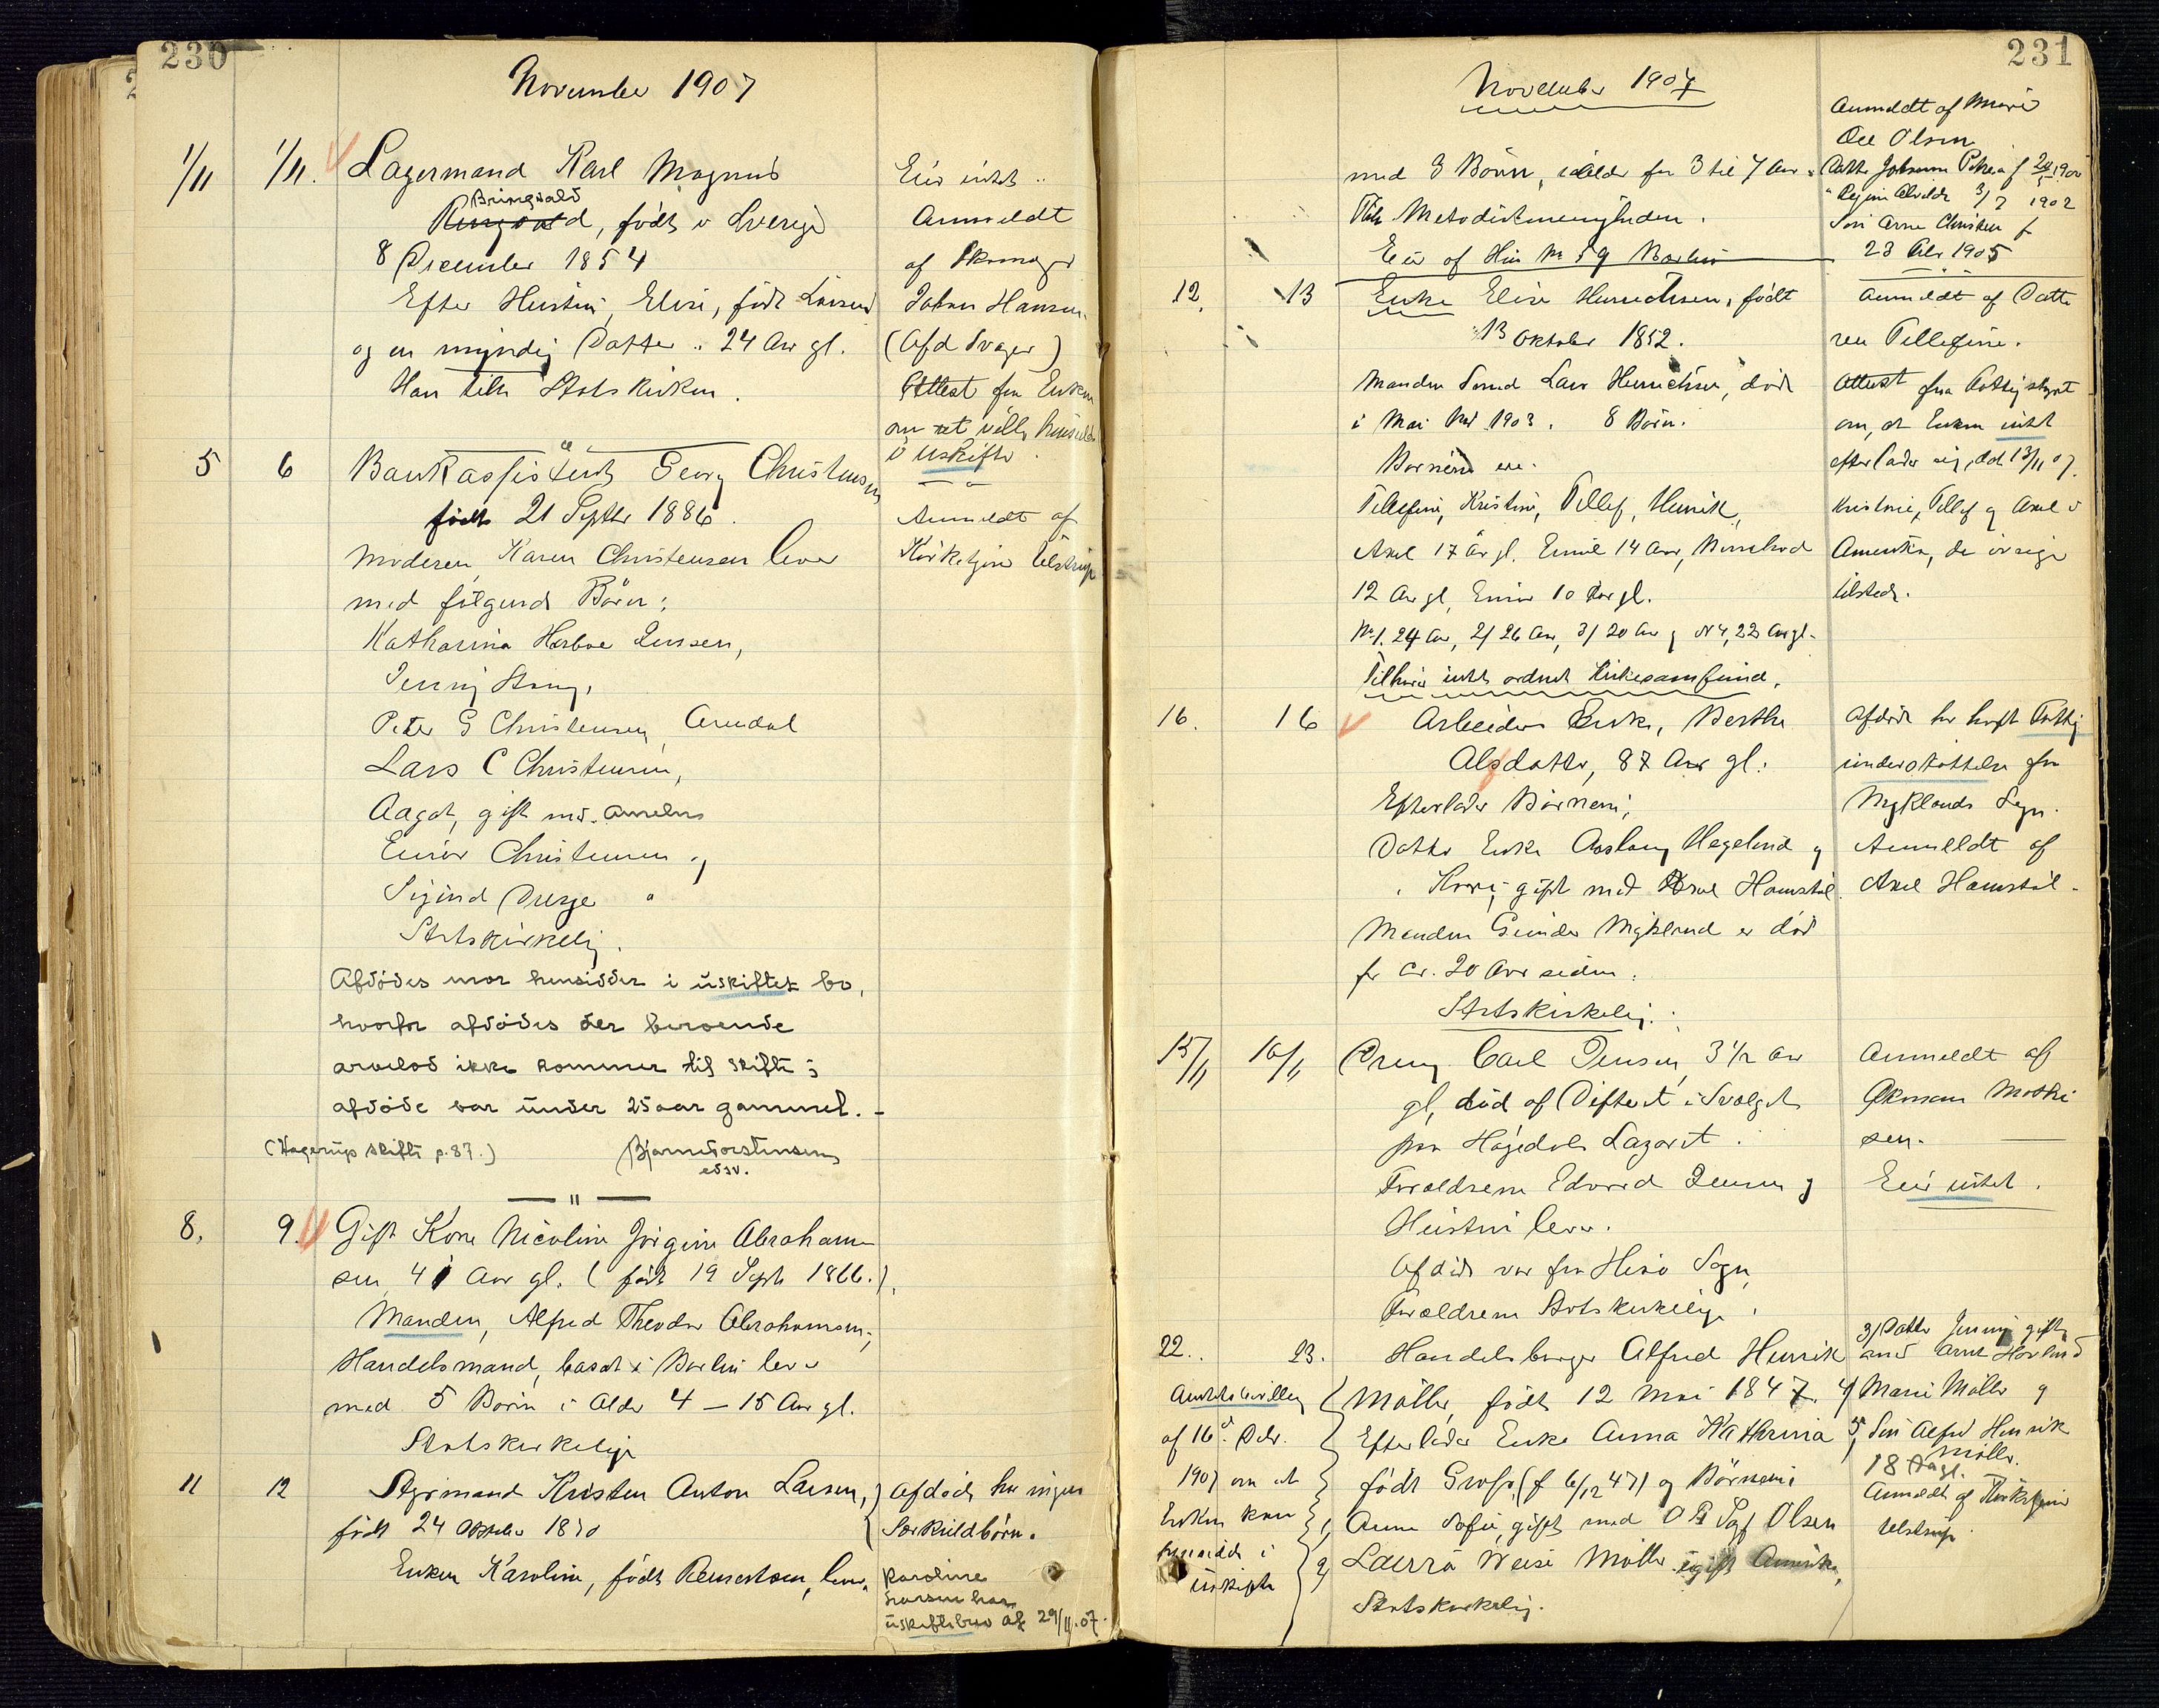 230
November 1907
1/11 1/11. Lagermand Karl Magnus
Bringsvald
Ringvald, født i Sverige
8 December 1854
Efter Hustru, Elise, født Larsen
og en myndig Datter .. 24 Aar gl.
Han tilh Statskirken.
Eier intet ..
Anmeldt
af Skomager
Johan Hansen.
(Afd Svoger)
Attest fra Enken
om at ville hensidde
i uskifte.
5 6 Bankassistent Georg Christensen
født 21 Septbr 1886.
Moderen, Karen Christensen lever
med følgende Børn:
Katharina Horboe Jensen,
Jenny Stang,
Peter G Christensen, Arendal
Lars C Christensen,
Aagot, gift md. Amelns
Einar Christensen og
Sigurd Dresje "
Statskirkelig.
Anmeldt af
Kirketjener Ulstrup
Afdødes mor hensidder i uskiftet bo,
hvorfor afdødes der beroende
arvelod ikke kommer til skifte;
afdøde var under 25 aar gammel. -
(Hagerups skifte p. 87.) Bjarne Torstensens
edsv.
— " —
8. 9. Gift Kone Nicoline Jørgine Abraham-
sen, 41 Aar gl. (født 19 Sept 1866.).
Manden, Alfred Theodor Abrahamsen,
Handelsmand, bosat i Barbu lever
med 5 Børn i Alder 4 - 15 Aar gl.
Statskirkelige
11 12 Styrmand Kristen Anton Larsen,
født 24 Oktober 1870
Enken Karoline, født Reinertsen, lever,
Afdøde har ingen
Særkuldbørn.
Karoline
Larsen har
uskiftebev af 29/11.07.
231
November 1907
med 3 Børn, i alder fra 3 til 7 Aar.
Tilh Metodistmenigheden.
Eier af Hus M 59 Barbu
Anmeldt af Marie
Olsen
Datter Johanne Petrea f 1900
" Regine Alvilde 3/7 1902
Søn Arne Christen f
23 Abr 1905
12. 13 Enke Elise Henrichsen, født
13 Oktober 1852.
Manden Sømd Lars Henrichsen, død
i Mai Md 1903. 8 Børn.
Børnene ere.
Tellefine, Kristine, Tellef, Henrik,
Axel 17 år gl. Emil 14 Aar,
12 Aar gl, Einar 10 Aar gl.
No 1. 24 Aar, 2/ 26 Aar, 3/ 20 Aar og N 4, 22 Aar gl.
Tilhører intet ordnet Kirkesamfund.
Anmeldt af Datte
ren Tellefine.
Attest fra Fattigstyret
om, at Enken intet
efterlader sig, dat 13/11 07.
Kristine, Tellef og Axel i
Amerika, de øvrige
tilstede.
16. 16 Arbeider Enke, Berthe
Alsdatter, 87 Aar gl.
Efterlader Børnene,
Datter Enke Aaslaug Hegelund og
" Kari, gift med Axel Homstøl.
Manden Gunder Mykland er død
for ca. 20 Aar siden.
Statskirkelig.
Afdøde har havt Fattig
understøttelse fra
Myklands Sogn.
Anmeldt af
Axel Homstøl.
15/11 16/11 Dreng Carl Jensen, 3 1/2 Aar
gl, død af Difterit i Svælget
paa Høgedals Lazaret.
Forældrene Edvard Jensen og
Hustru lever.
Afdøde var fra Hisø Sogn,
Forældrene Statskirkelige.
Anmeldt af
Økonom Mathi
sen.
Eier intet.
22.. 23. Handelsborger Alfred Henrik
Møller, født 12 Mai 1847.
Efterlader Enke Anna Katharina
født Gross, (f 6/12 47) og Børnene
1, Anna Sofie, gift med O P Olsen
2, Laura Weise Møller, ugift Amerika,
Statskirkelig.
Amtsbevilling
af 16d. Dcbr.
1907 om at
Enken kan
hensidde i
uskifte
3/ Datter Jenny gift
med Arnt Hovlund
4/ Marie Møller og
5, Søn Alfred Henrik
Møller.
18 A gl.
Anmeldt af Kirketjener
Ulstrup.